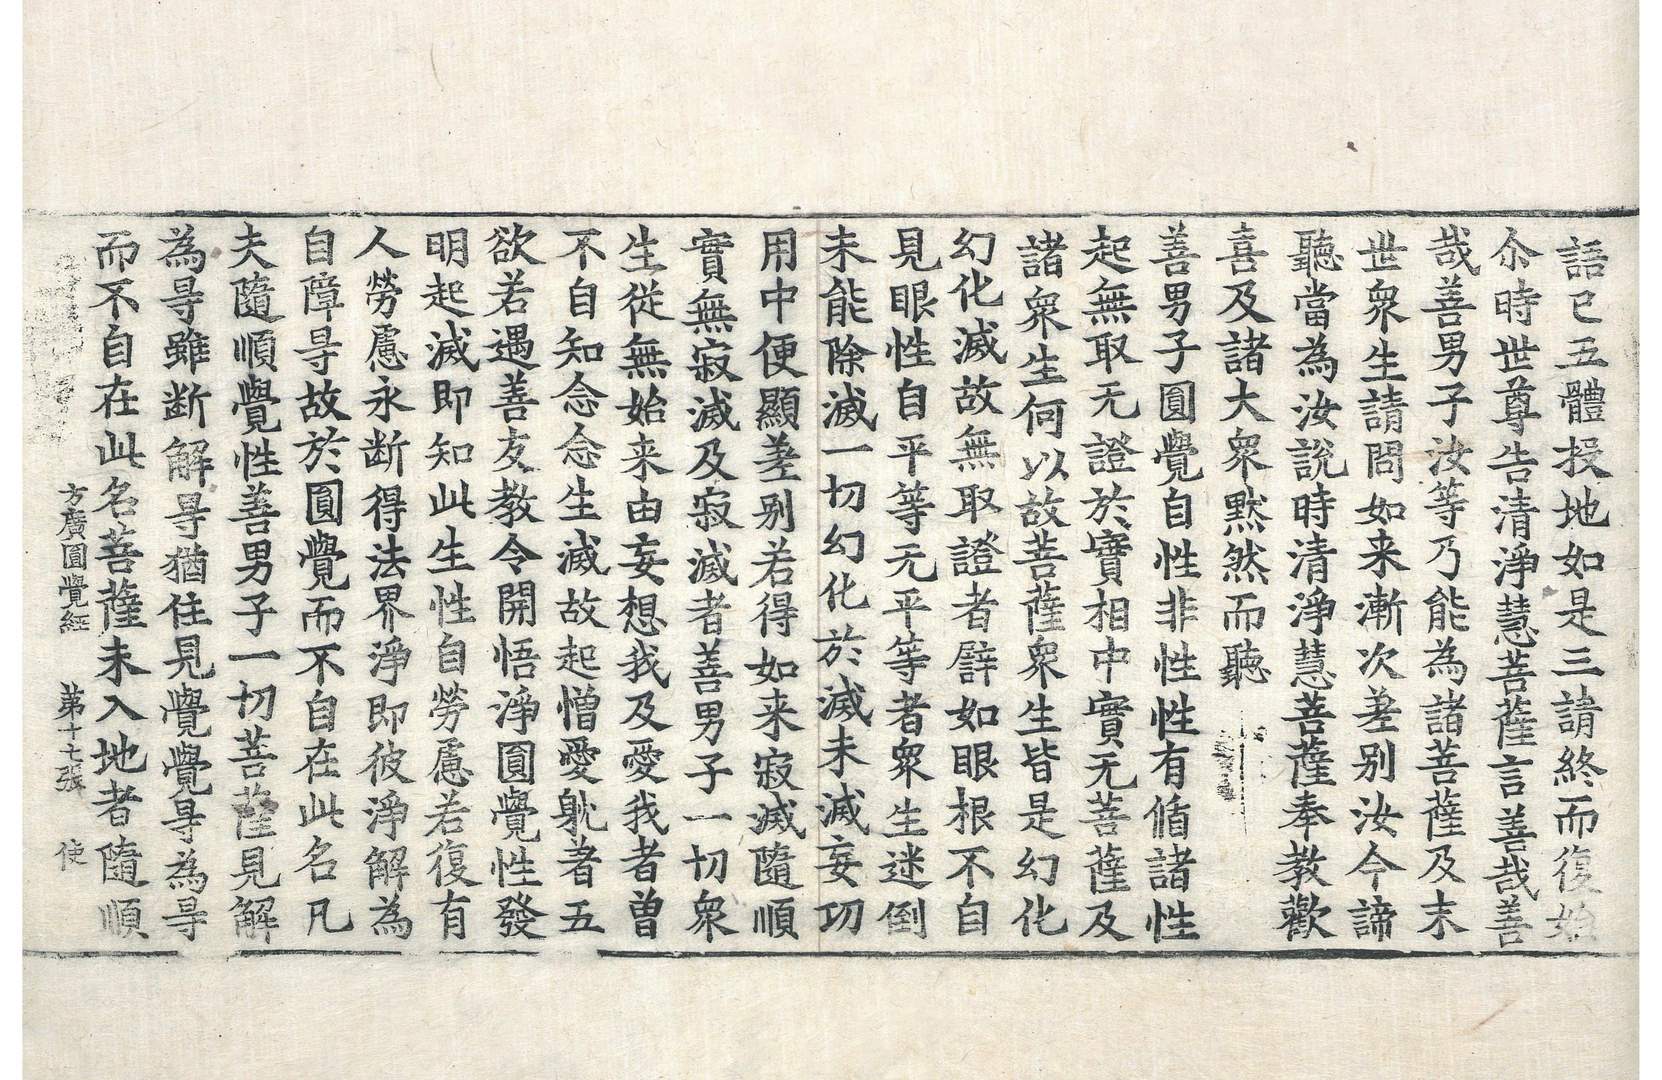 語已五體投地如是三請終而復始
尒時世尊告清淨慧菩薩言善哉善
哉善男子汝等乃能為諸菩薩及末
世衆生請問如来漸次差别汝今諦
聽當為汝說時清淨慧菩薩奉教歡
喜及諸大衆黙然而聽
善男子圓覺自性非性性有循諸性
起無取无證於實相中實无菩薩及
諸衆生何以故菩薩衆生皆是幻化
幻化滅故無取證者譬如眼根不自
見眼性自平等无平等者衆生迷倒
未能除滅一切幻化於滅未滅妄功
用中便顯差别若得如来寂滅隨順
實無寂滅及寂滅者善男子一切衆
生從無始来由妄想我及愛我者曽
不自知念念生滅故起憎愛躭著五
欲若遇善友教令開悟淨圓覺性發
明起滅即知此生性自勞慮若復有
人勞慮永断得法界淨即彼淨解為
自障㝵故於圓覺而不自在此名凡
夫隨順覺性善男子一切菩薩見解
為㝵雖断解㝵猶住見覺覺㝵為㝵
而不自在此名菩薩未入地者隨順
方廣圓覺経 第十七張 使